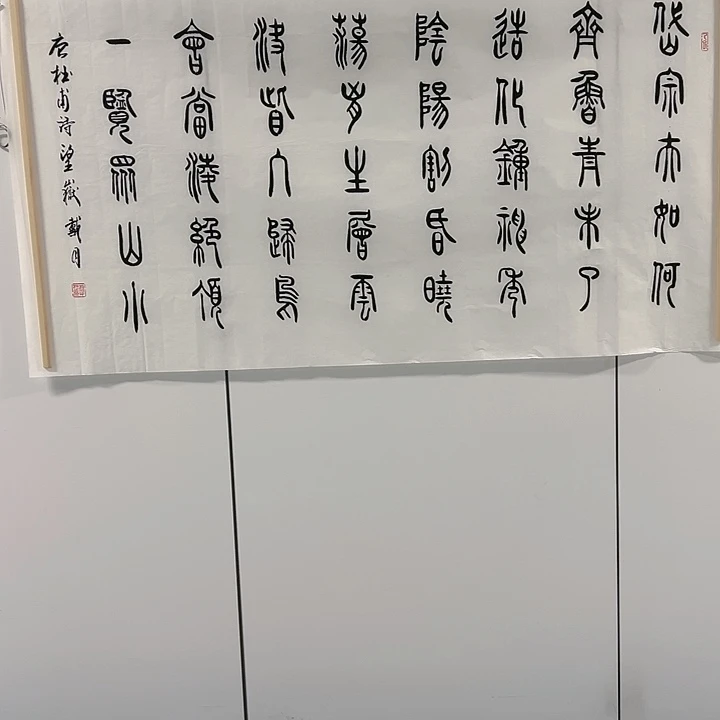 岱宗夫如何
齊魯青未了
造化鍾神秀
陰陽割昏曉
蕩胸生層雲
決眥入歸鳥
會當淩絕頂
一覽眾山小
唐杜甫詩望嶽 戴月